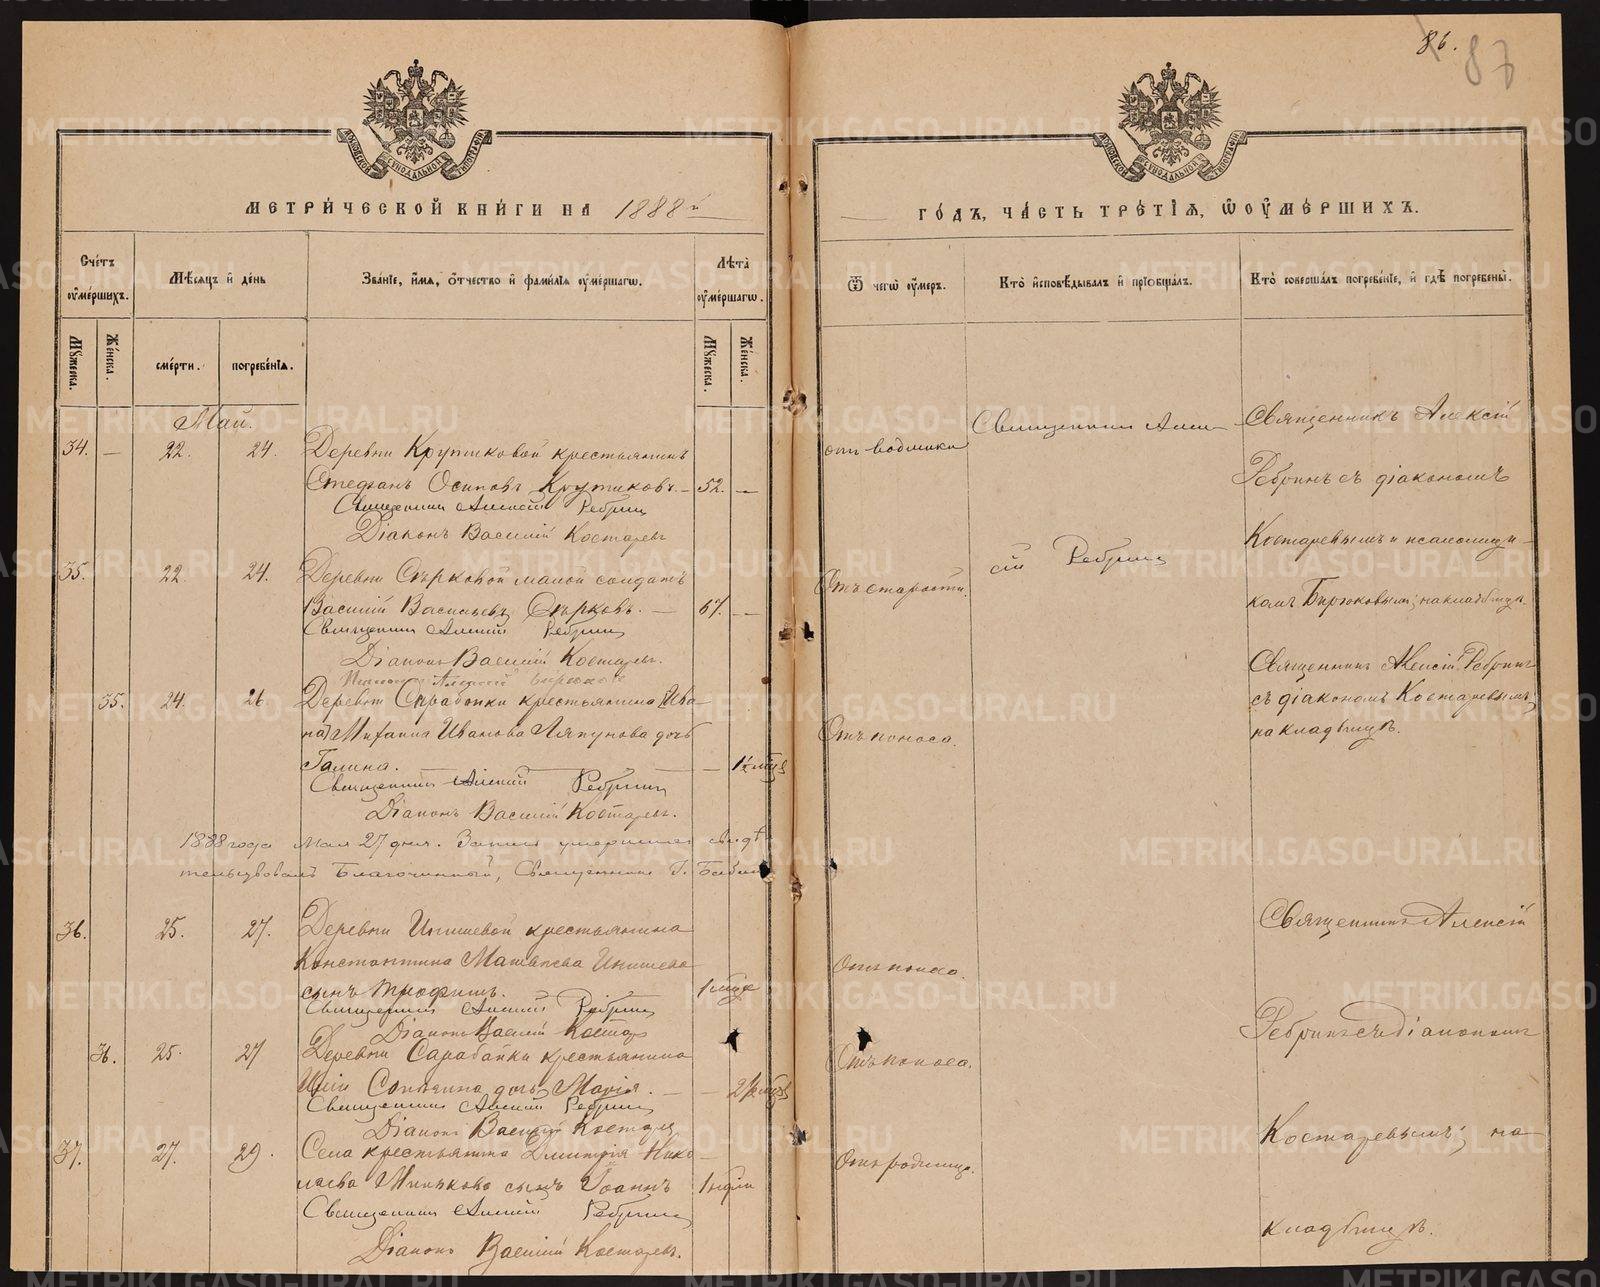 86.
87
МЕТРИЧЕСКОЙ КНИГИ НА 1888й
ГОДЪ, ЧАСТЬ ТРЕТІЯ, Ѿ ОУМЕРШИХЪ.
Счетъ оумершихъ.
Мѣсяцъ и день
Званіе, имя, отчество и фамилія оумершагѡ.
Лѣта оумершагѡ.
Ѿ чегѡ оумеръ.
Кто исповѣдывалъ и пріобщалъ.
Кто совершалъ погребеніе, и гдѣ погребены.
Мужеска.
Женска.
смерти.
погребенія.
Мужеска.
Женска.
Май.
34. — 22. 24. Деревни Крутиковой крестьянинъ
Стефанъ Осиповъ Крутиковъ. — 52. —
отъ водянки
Священникъ Алексій Ребринъ
Діаконъ Василій Костаревъ
Священникъ Алек-
сій Ребринъ
Священникъ Алексій
Ребринъ съ діакономъ
Костаревымъ и псаломщи-
комъ Бирюковымъ; на кладбищѣ.
35. 22. 24. Деревни Сѣрковой малой солдатъ
Василій Васильевъ Сѣрковъ. — 67. —
Отъ старости.
Священникъ Алексій Ребринъ
Діаконъ Василій Костаревъ.
Алексій Бирюковъ
35. 24. 26. Деревни Сарабайки крестьянина (Ива-
на) Михаила Иванова Ляпунова дочь
Галина. — 1½ мѣс
Отъ поноса.
Священникъ Алексій Ребринъ
Діаконъ Василій Костаревъ.
Священникъ Алексій Ребринъ
съ діакономъ Костаревымъ,
на кладбищѣ.
1888 года Мая 27 дня. Запись умершихъ свидѣ-
тельствовалъ Благочинный, Священникъ
36. 25. 27. Деревни Инишевой крестьянина
Константина Матвѣева Инишева
сынъ Трофимъ. 1 мѣс
Отъ поноса.
Священникъ Алексій Ребринъ
Діаконъ Василій Костаревъ
36. 25. 27 Деревни Сарабайки крестьянина
дочь Марія. — 2½ мѣс
Отъ поноса.
Священникъ Алексій Ребринъ
Діаконъ Василій Костаревъ
37. 27. 29. Села крестьянина Дмитрія Нико-
лаева сынъ Іоаннъ 1 ндѣли
Отъ родимца.
Священникъ Алексій Ребринъ
Діаконъ Василій Костаревъ.
Священникъ Алексій
Ребринъ съ діакономъ
Костаревымъ; на
кладбищѣ.
METRIKI.GASO-URAL.RU